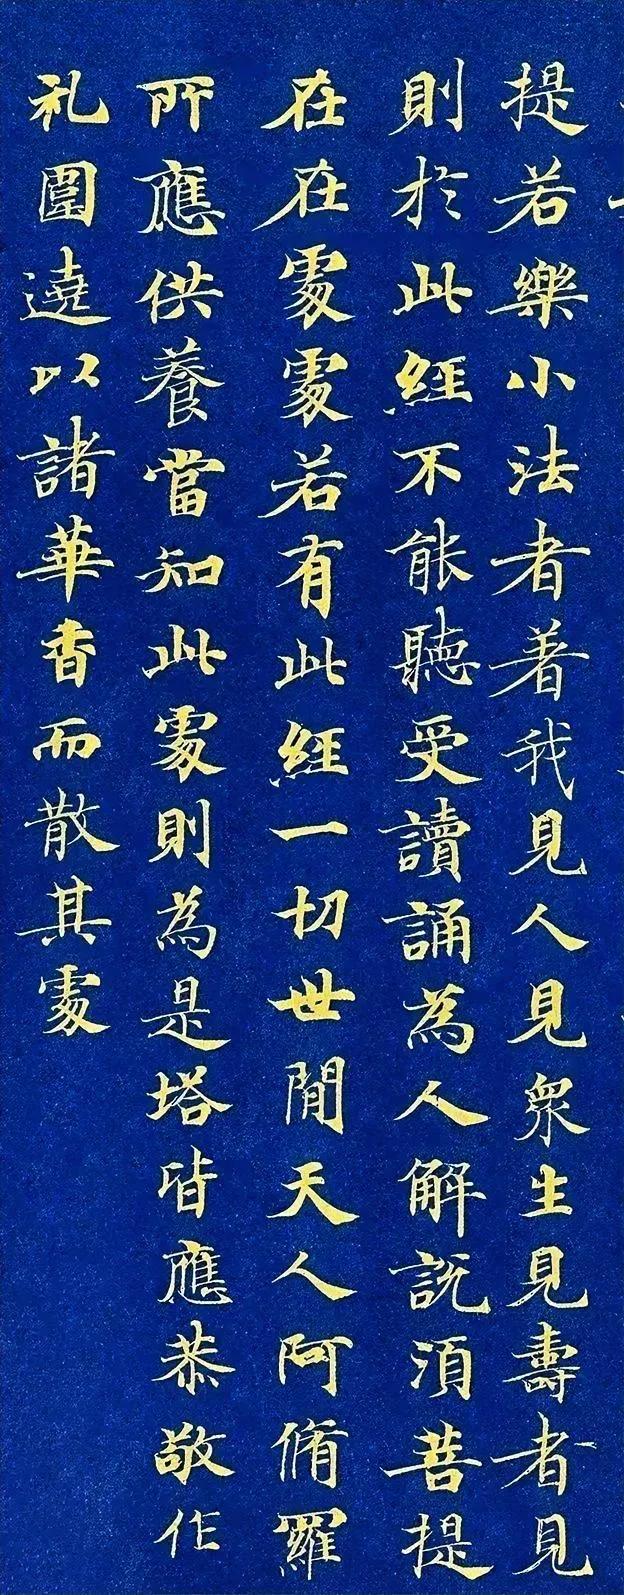 提若樂小法者著我見人見衆生見壽者見
則於此經不能聽受讀誦為人解説須菩提
在在處處若有此經一切世間天人阿脩羅
所應供養當知此處則為是塔皆應恭敬作
礼圍遶以諸華香而散其處